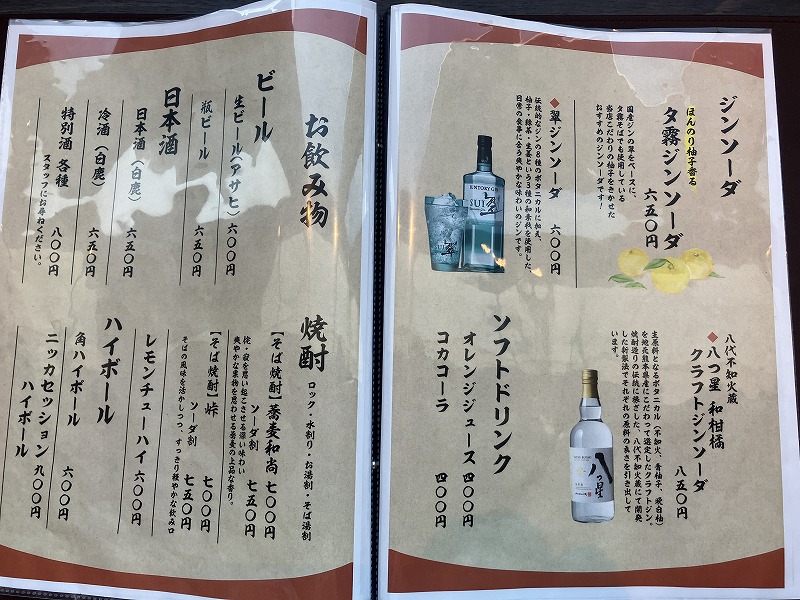 ジンソーダ
ほんのり柚子香る
夕霧ジンソーダ
六五〇円
国産ジンの翠をベースに、
夕霧そばでも使用している
当店こだわりの柚子をきかせた
おすすめのジンソーダです!
◆翠ジンソーダ 六〇〇円
伝統的なジンの8種のボタニカルに加え、
柚子・緑茶・生姜という3種の和素材を使用した、
日常の食事に合う爽やかな味わいのジンです。
SUNTORY GIN
SUI
翠
八代不知火蔵
◆八つ星 和柑橘
クラフトジンソーダ
八五〇円
主原料となるボタニカル(不知火、青柚子、晩白柚)
を地元熊本県産にこだわって選定したクラフトジン。
焼酎造りの伝統に根ざした、八代不知火蔵にて開発
した新製法でそれぞれの原料の良さを引き出して
います。
八つ星
ソフトドリンク
オレンジジュース 四〇〇円
コカコーラ 四〇〇円
お飲み物
ビール
生ビール(アサヒ) 六〇〇円
瓶ビール 六五〇円
日本酒
日本酒(白鹿) 六五〇円
冷酒(白鹿) 六五〇円
特別酒 各種 八〇〇円
スタッフにお尋ねください。
焼酎
ロック・水割り・お湯割・そば湯割
【そば焼酎】蕎麦和尚 七〇〇円
ソーダ割 七五〇円
侘・寂を思い起こさせる深い味わい
爽やかな果物を思わせる蕎麦の上品な香り。
【そば焼酎】峠 七〇〇円
ソーダ割 七五〇円
そばの風味を活かしつつ、すっきり軽やかな飲み口
レモンチューハイ 六〇〇円
ハイボール
角ハイボール 六〇〇円
ニッカセッション
ハイボール 九〇〇円